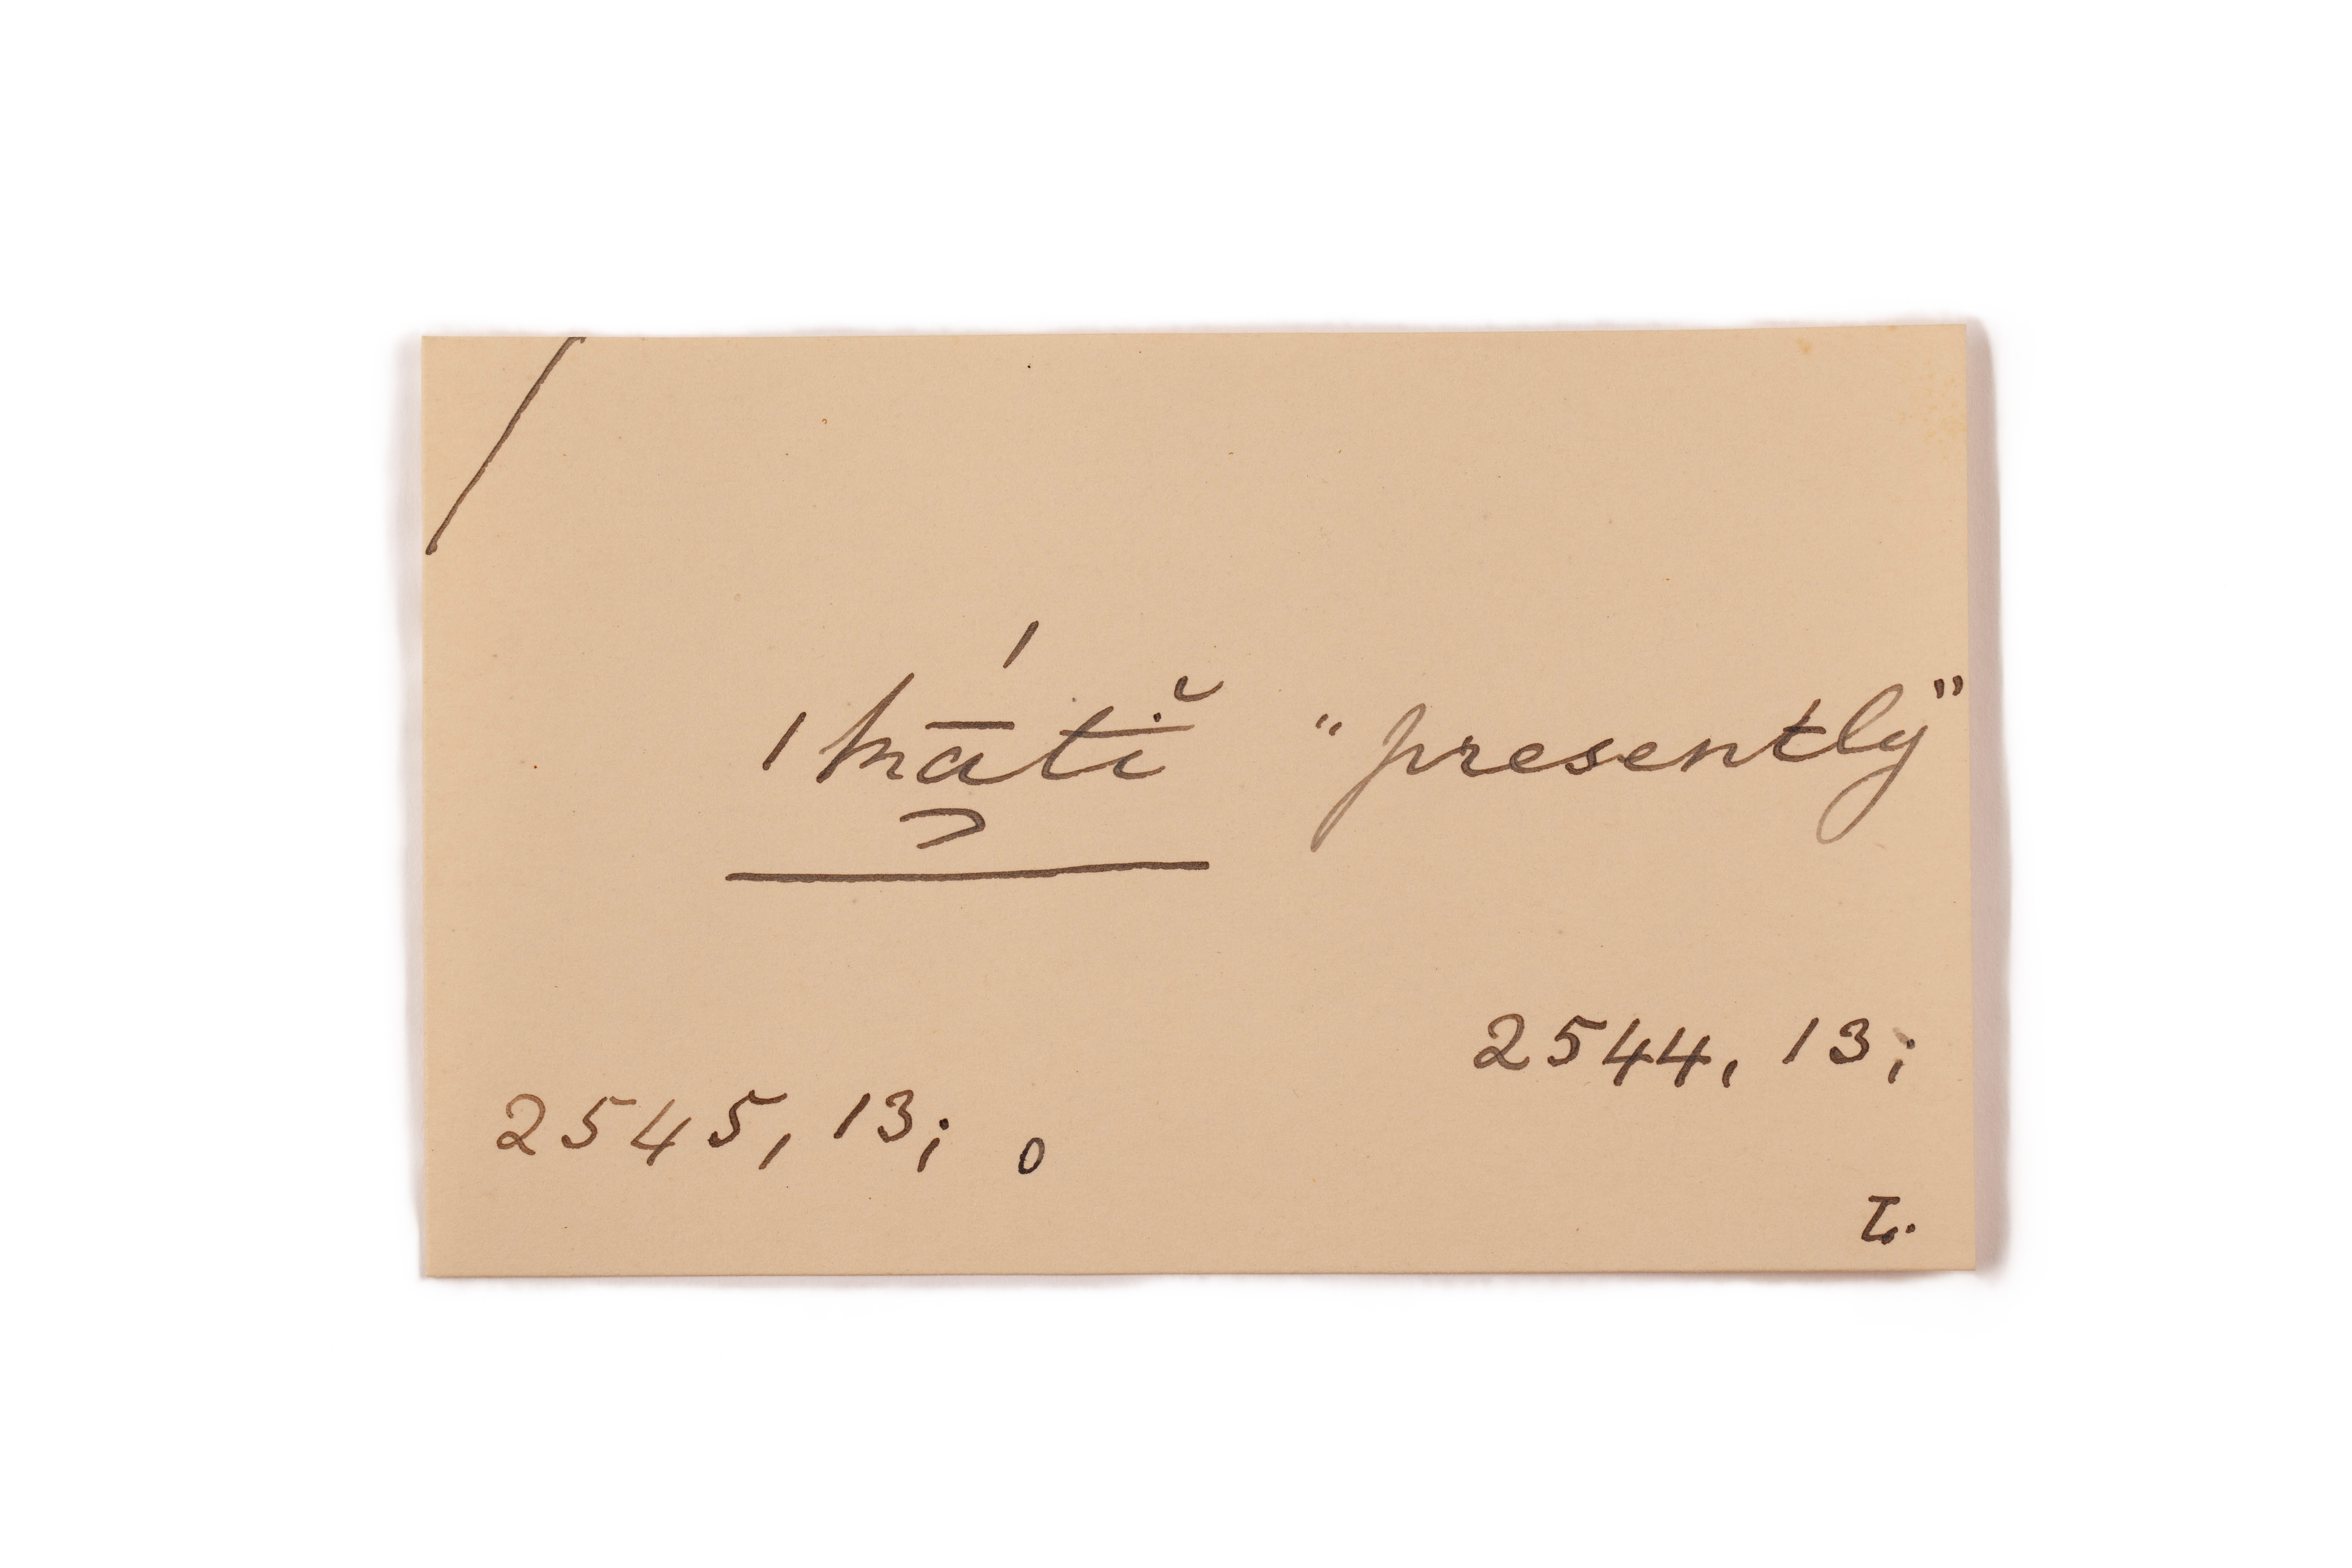 ǀhā́tĭ "presently"
2544, 13;
2545, 13; o
L.